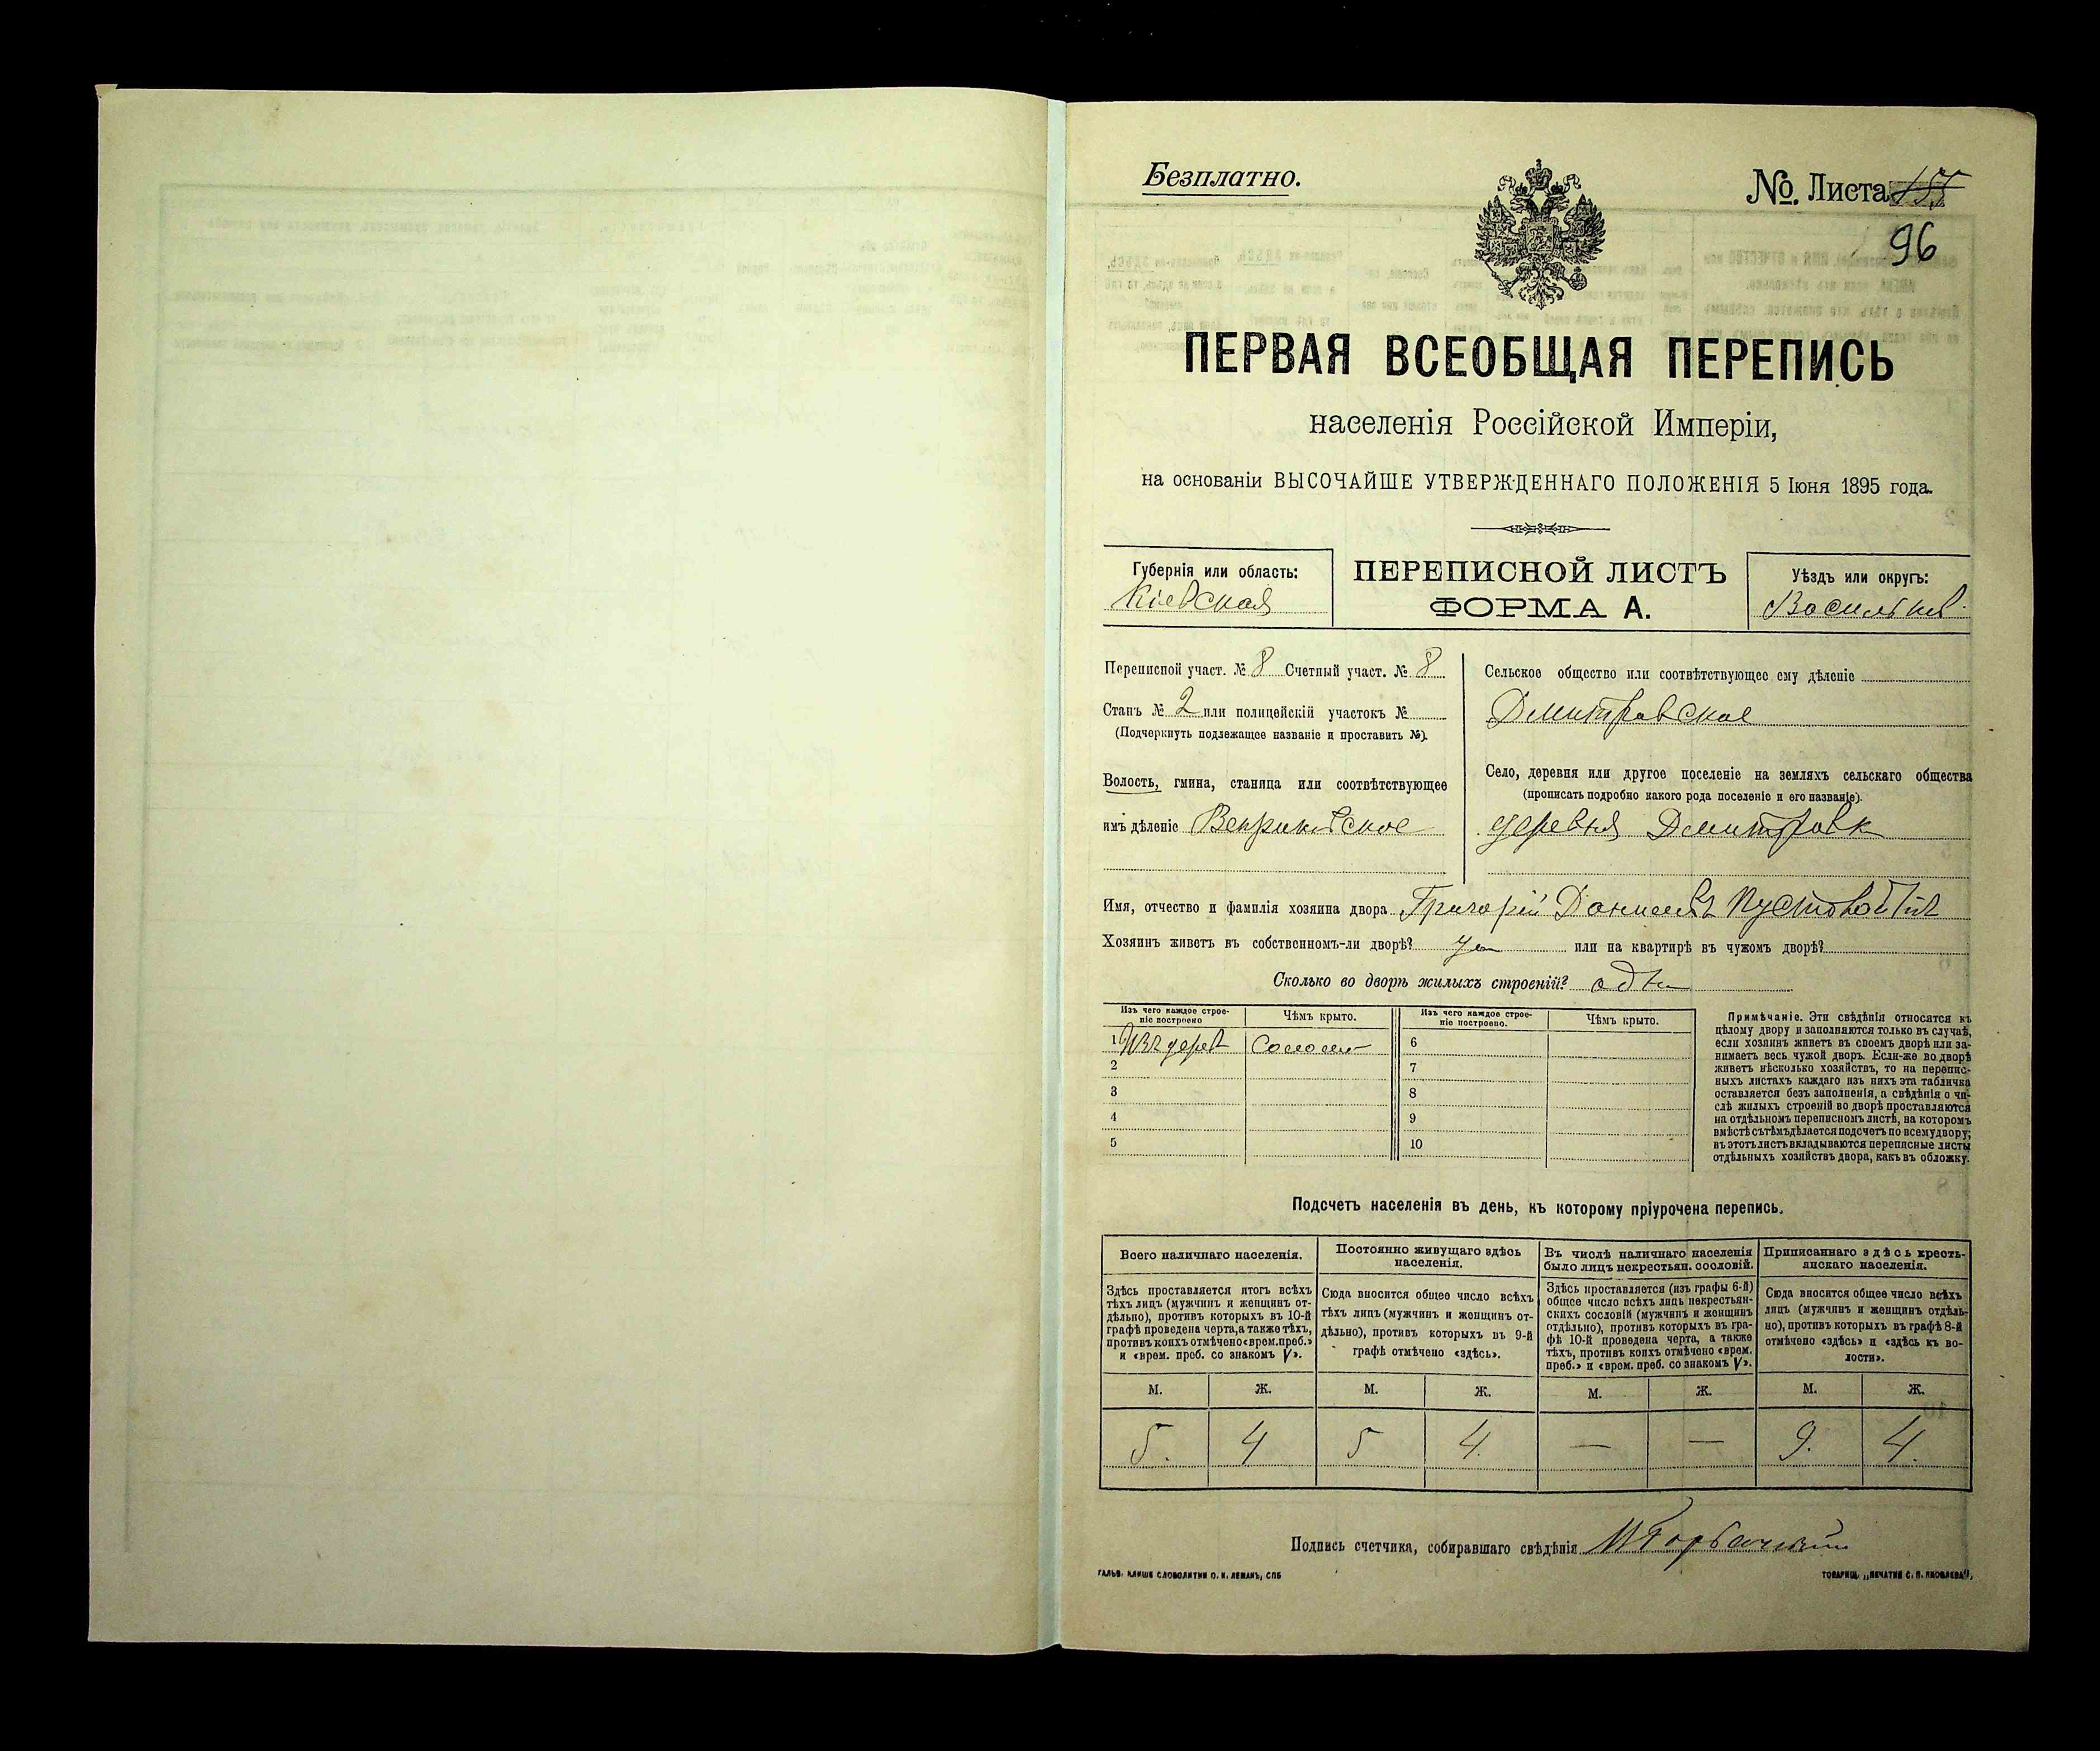 Безплатно.
№. Листа
96
ПЕРВАЯ ВСЕОБЩАЯ ПЕРЕПИСЬ
населенія Россійской Имперіи,
на основаніи ВЫСОЧАЙШЕ УТВЕРЖДЕННАГО ПОЛОЖЕНІЯ 5 Іюня 1895 года.
Губернія или область:
Кіевская
ПЕРЕПИСНОЙ ЛИСТЪ
ФОРМА А.
Уѣздъ или округъ:
Васильков.
Переписной участ. № 8 Счетный участ. № 8
Станъ № 2 или полицейскій участокъ №
(Подчеркнуть подлежащее названіе и проставить №).
Волость, гмина, станица или соотвѣтствующее
имъ дѣленіе
Сельское общество или соотвѣтствующее ему дѣленіе
Дмитровское
Село, деревня или другое поселеніе на земляхъ сельскаго общества
(прописать подробно какого рода поселеніе и его названіе).
деревня Дмитровк
Имя, отчество и фамилія хозяина двора Григорій
Хозяинъ живетъ въ собственномъ-ли дворѣ? да или на квартирѣ въ чужомъ дворѣ?
Сколько во дворѣ жилыхъ строеній?
Изъ чего каждое строе-
ніе построено
Чѣмъ крыто.
Изъ чего каждое строе-
ніе построено.
Чѣмъ крыто.
1 Изъ дерев
2
3
4
5
6
7
8
9
10
Примѣчаніе. Эти свѣдѣнія относятся къ
цѣлому двору и заполняются только въ случаѣ,
если хозяинъ живетъ въ своемъ дворѣ или за-
нимаетъ весь чужой дворъ. Если-же во дворѣ
живетъ нѣсколько хозяйствъ, то на перепис-
ныхъ листахъ каждаго изъ нихъ эта табличка
оставляется безъ заполненія, а свѣдѣнія о чи-
слѣ жилыхъ строеній во дворѣ проставляются
на отдѣльномъ переписномъ листѣ, на которомъ
вмѣстѣ съ тѣмъ дѣлается подсчетъ по всему двору;
въ этотъ листъ вкладываются переписные листы
отдѣльныхъ хозяйствъ двора, какъ въ обложку.
Подсчетъ населенія въ день, къ которому пріурочена перепись.
Всего наличнаго населенія.
Здѣсь проставляется итогъ всѣхъ
тѣхъ лицъ (мужчинъ и женщинъ от-
дѣльно), противъ которыхъ въ 10-й
графѣ проведена черта, а также тѣхъ,
противъ коихъ отмѣчено «врем. преб.»
и «врем. преб. со знакомъ V».
Постоянно живущаго здѣсь
населенія.
Сюда вносится общее число всѣхъ
тѣхъ лицъ (мужчинъ и женщинъ от-
дѣльно), противъ которыхъ въ 9-й
графѣ отмѣчено «здѣсь».
Въ числѣ наличнаго населенія
было лицъ некрестьян. сословій.
Здѣсь проставляется (изъ графы 6-й)
общее число всѣхъ лицъ некрестьян-
скихъ сословій (мужчинъ и женщинъ
отдѣльно), противъ которыхъ въ гра-
фѣ 10-й проведена черта, а также
тѣхъ, противъ коихъ отмѣчено «врем.
преб.» и «врем. преб. со знакомъ V».
Приписаннаго здѣсь кресть-
янскаго населенія.
Сюда вносится общее число всѣхъ
лицъ (мужчинъ и женщинъ отдѣль-
но), противъ которыхъ въ графѣ 8-й
отмѣчено «здѣсь» и «здѣсь къ во-
лости».
М. Ж. М. Ж. М. Ж. М. Ж.
5. 4 5 4. — — 9. 4.
Подпись счетчика, собиравшаго свѣдѣнія
ГАЛЬВ. КЛИШЕ СЛОВОЛИТНИ О. И. ЛЕМАНЪ, СПБ
ТОВАРИЩ. „ПЕЧАТНЯ С. П. ЯКОВЛЕВА",